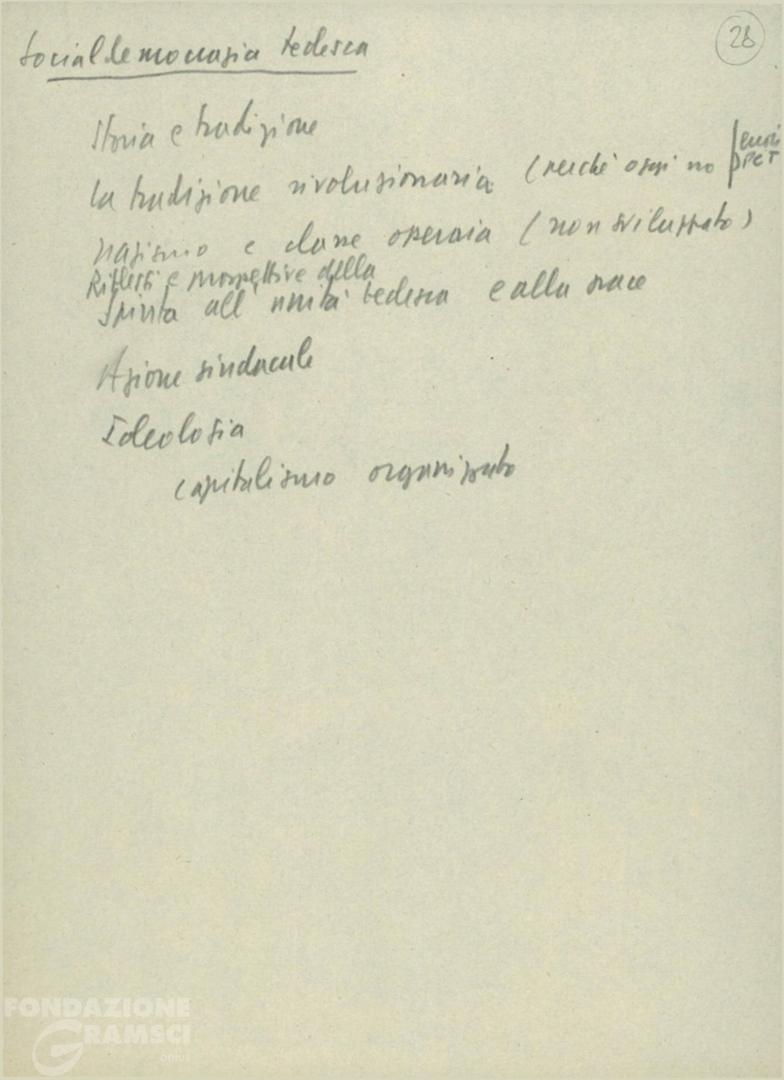 28
Socialdemocrazia tedesca
Storia e tradizione
la tradizione rivoluzionaria (perché oggi no | errori PCT
nazismo e classe operaia (non sviluppato)
Riflessi e prospettive della
Spinta all'unità tedesca e alla pace
Azione sindacale
Ideologia
capitalismo organizzato
FONDAZIONE
GRAMSCI
onlus